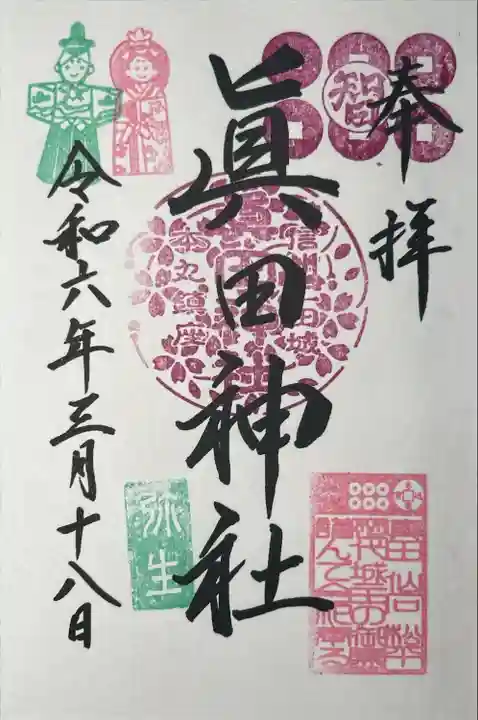 奉拝
智
眞田神社
信州上田城
本丸鎮座
令和六年三月十八日
弥生